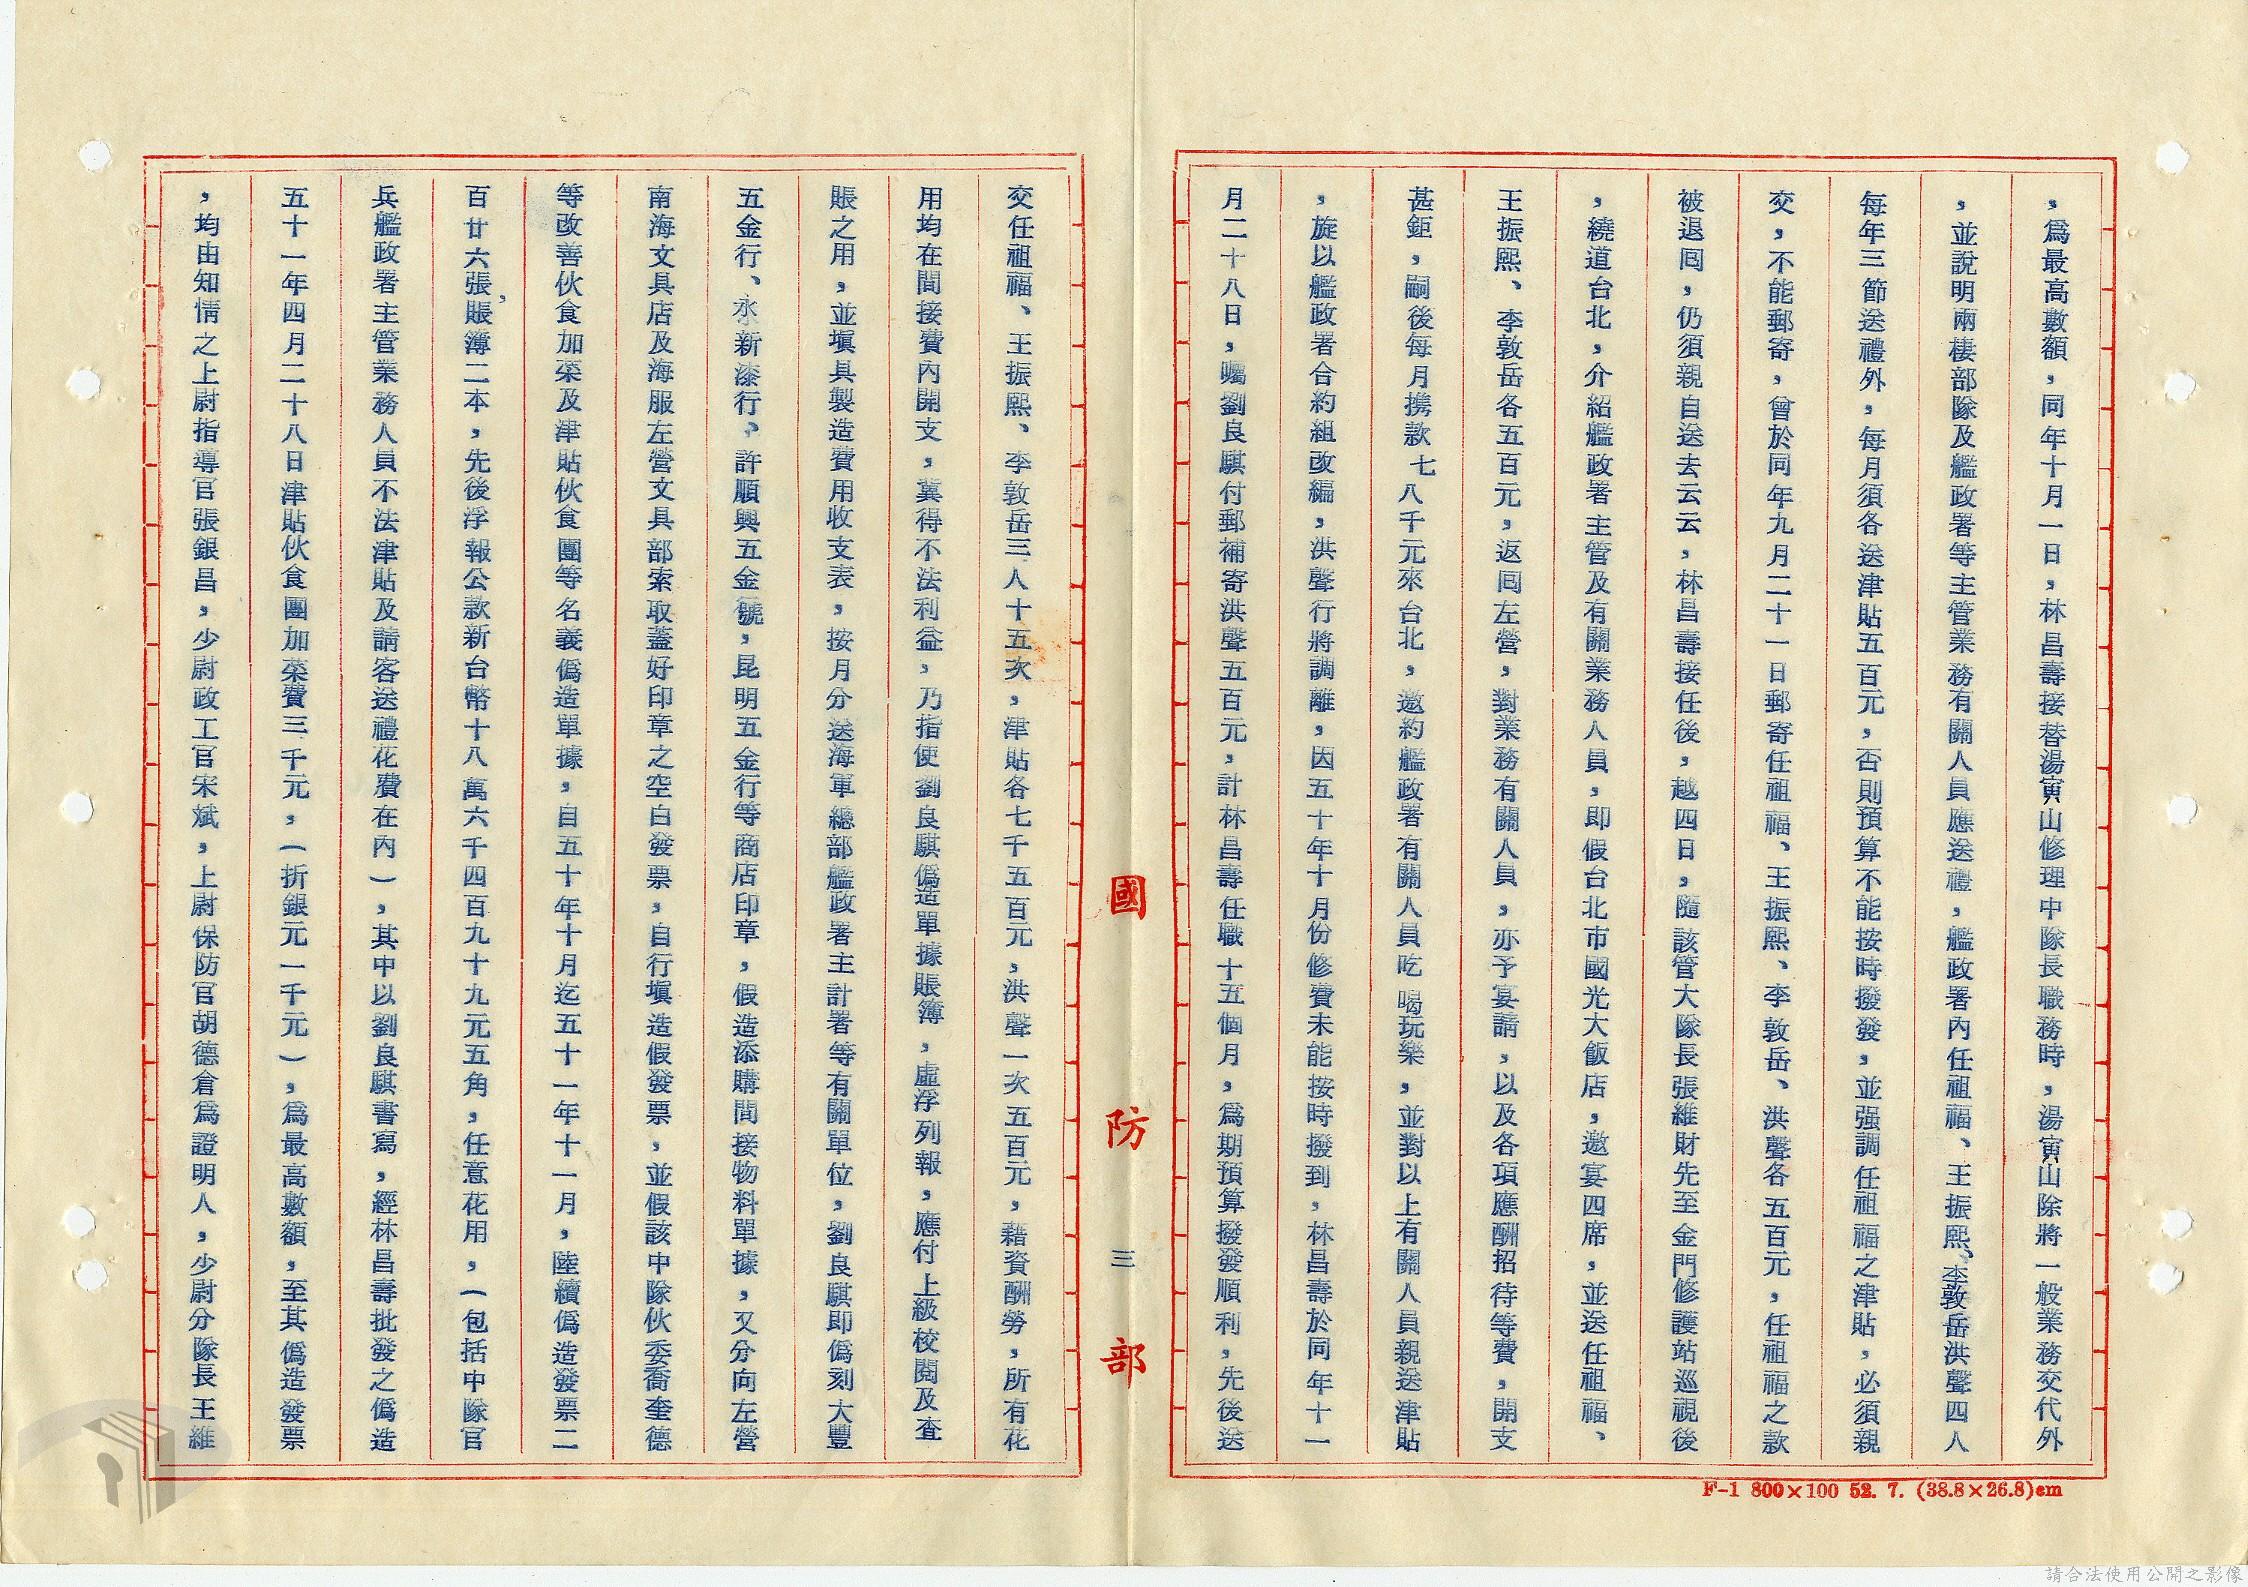 ，爲最高數額，同年十月一日，林昌壽接替湯寅山修理中隊長職務時，湯寅山除將一般業務交代外
，並說明兩棲部隊及艦政署等主管業務有關人員應送禮，艦政署內任祖福、王振熙、李敦岳洪聲四人
每年三節送禮外，每月須各送津貼五百元，否則預算不能按時撥發，並强調任祖福之津貼，必須親
交，不能郵寄，曾於同年九月二十一日郵寄任祖福、王振熙、李敦岳、洪聲各五百元，任祖福之款
被退囘，仍須親自送去云云，林昌壽接任後，越四日，隨該管大隊長張維財先至金門修護站巡視後
，繞道台北，介紹艦政署主管及有關業務人員，即假台北市國光大飯店，邀宴四席，並送任祖福、
王振熙、李敦岳各五百元，返囘左營，對業務有關人員，亦予宴請，以及各項應酬招待等費，開支
甚鉅，嗣後每月携款七八千元來台北，邀約艦政署有關人員吃喝玩樂，並對以上有關人員親送津貼
，旋以艦政署合約組改編，洪聲行將調離，因五十年十月份修費未能按時撥到，林昌壽於同年十一
月二十八日，囑劉良騏付郵補寄洪聲五百元，計林昌壽任職十五個月，爲期預算撥發順利，先後送
交任祖福、王振熙、李敦岳三人十五次，津貼各七千五百元，洪聲一次五百元，藉資酬勞，所有花
用均在間接費內開支，冀得不法利益，乃指使劉良騏僞造單據賬簿，虛浮列報，應付上級校閱及查
賬之用，並塡具製造費用收支表，按月分送海軍總部艦政署主計署等有關單位，劉良騏即僞刻大豐
五金行、永新漆行、許順興五金號，昆明五金行等商店印章，假造添購間接物料單據，又分向左營
南海文具店及海服左營文具部索取蓋好印章之空白發票，自行塡造假發票，並假該中隊伙委喬奎德
等改善伙食加菜及津貼伙食團等名義僞造單據，自五十年十月迄五十一年十一月，陸續僞造發票二
百廿六張，賬簿二本，先後浮報公款新台幣十八萬六千四百九十九元五角，任意花用，（包括中隊官
兵艦政署主管業務人員不法津貼及請客送禮花費在內），其中以劉良騏書寫，經林昌壽批發之僞造
五十一年四月二十八日津貼伙食團加菜費三千元，（折銀元一千元），爲最高數額，至其僞造發票
，均由知情之上尉指導官張銀昌，少尉政工官宋斌，上尉保防官胡德倉爲證明人，少尉分隊長王維
國防部
三
F-1 800×100 52. 7. (38.8×26.8)cm
請合法使用公開之影像